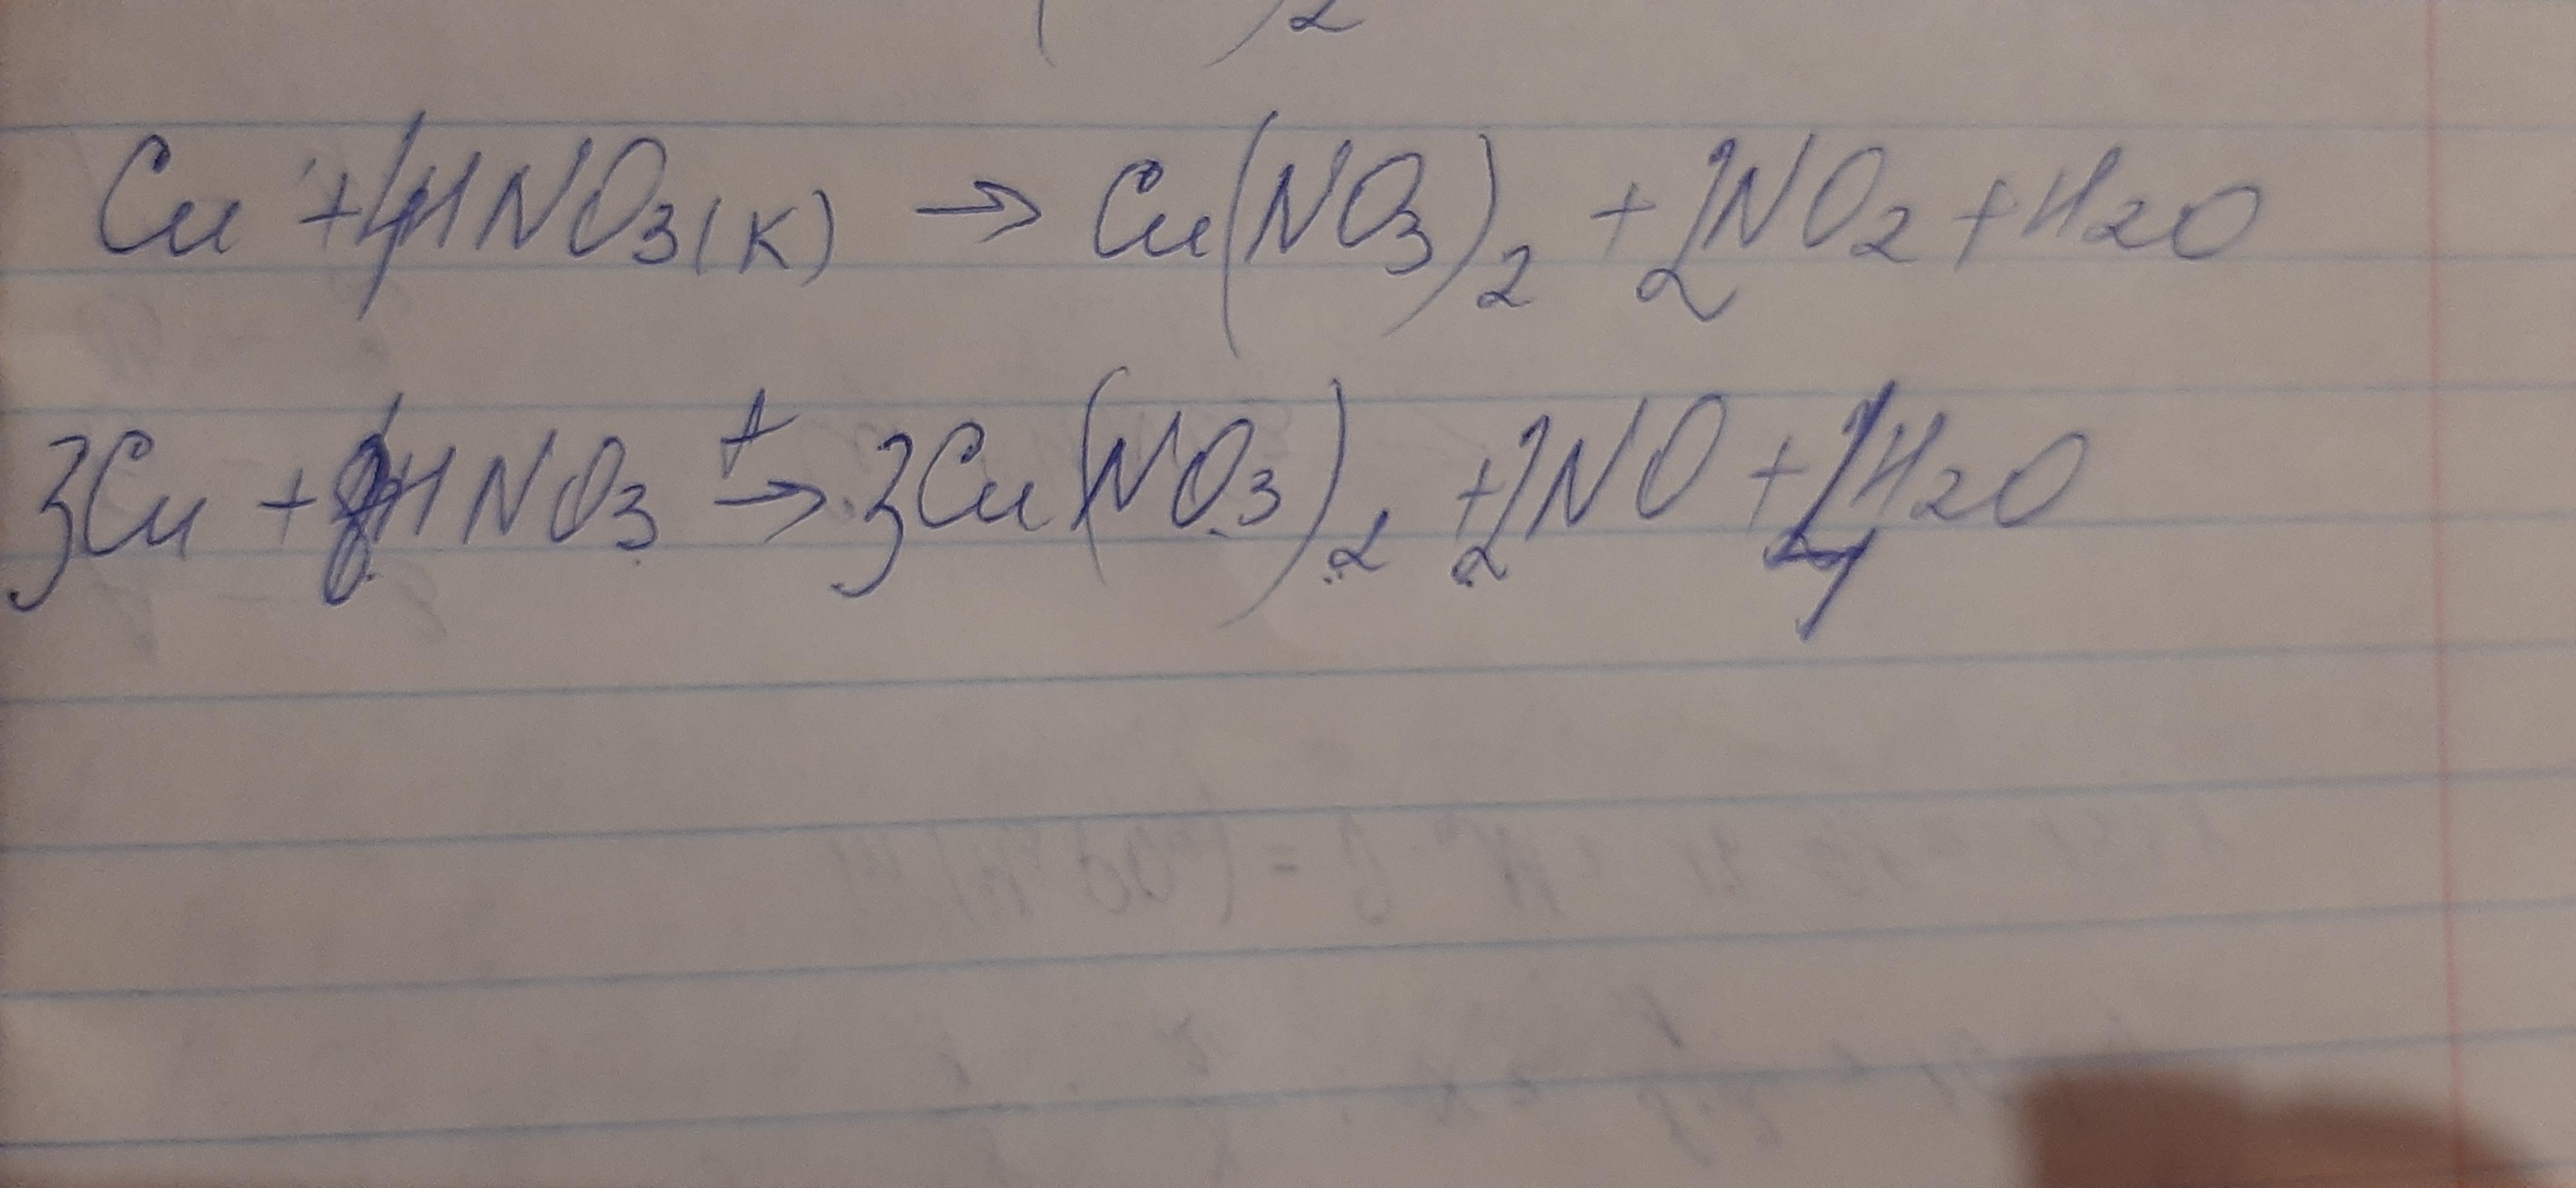 )2
Cu + 4HNO3(к) → Cu(NO3)2 + 2NO2 + H2O
3Cu + 8HNO3 t→ 3Cu(NO3)2 + 2NO + 4H2O